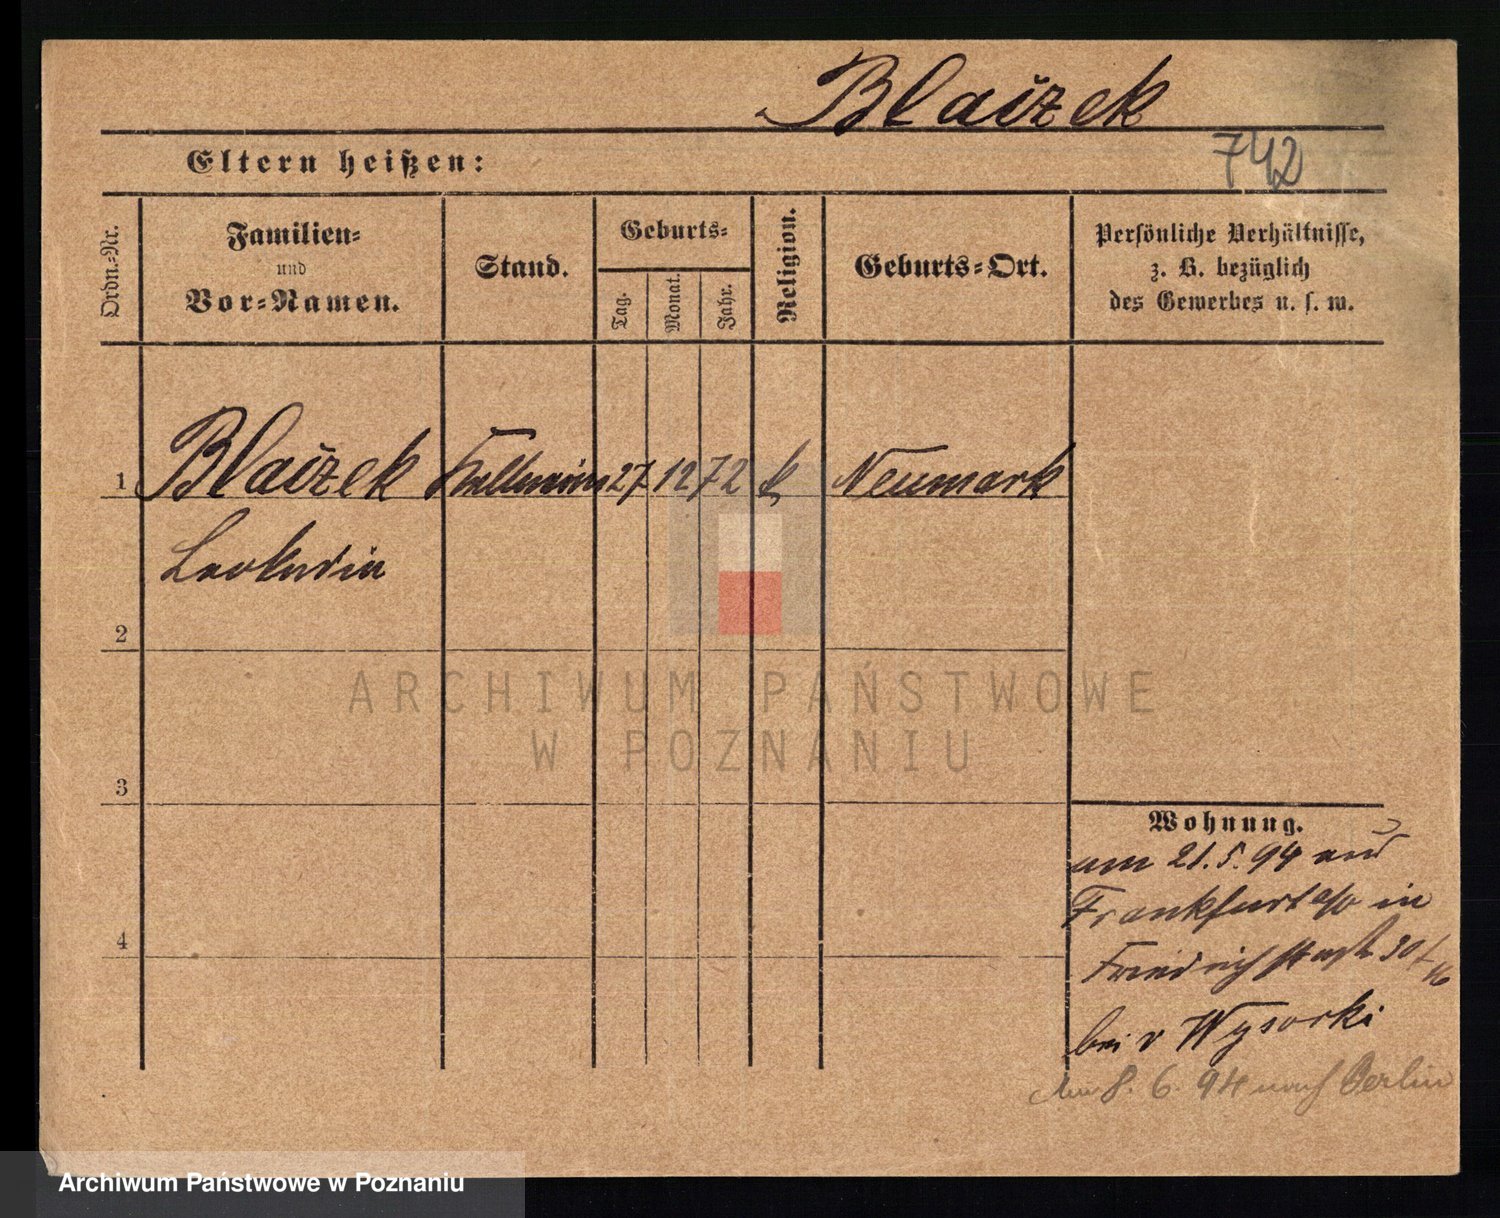 Blaizek
742
Eltern heißen:
Ordn.-Nr.
Familien-
und
Vor-Namen.
Stand.
Geburts-
Tag.
Monat.
Jahr.
Religion.
Geburts-Ort.
Persönliche Verhältnisse,
z. B. bezüglich
des Gewerbes u. s. w.
1 Blaizek Kellnerin 27 12 72 k Neumark
2
3
4
Wohnung.
am 21.5.94 aus
Frankfurt a/o in
30/
bei v Wysocki
Am 8. 6. 94 nach Berlin
ARCHIWUM PAŃSTWOWE
W POZNANIU
Archiwum Państwowe w Poznaniu